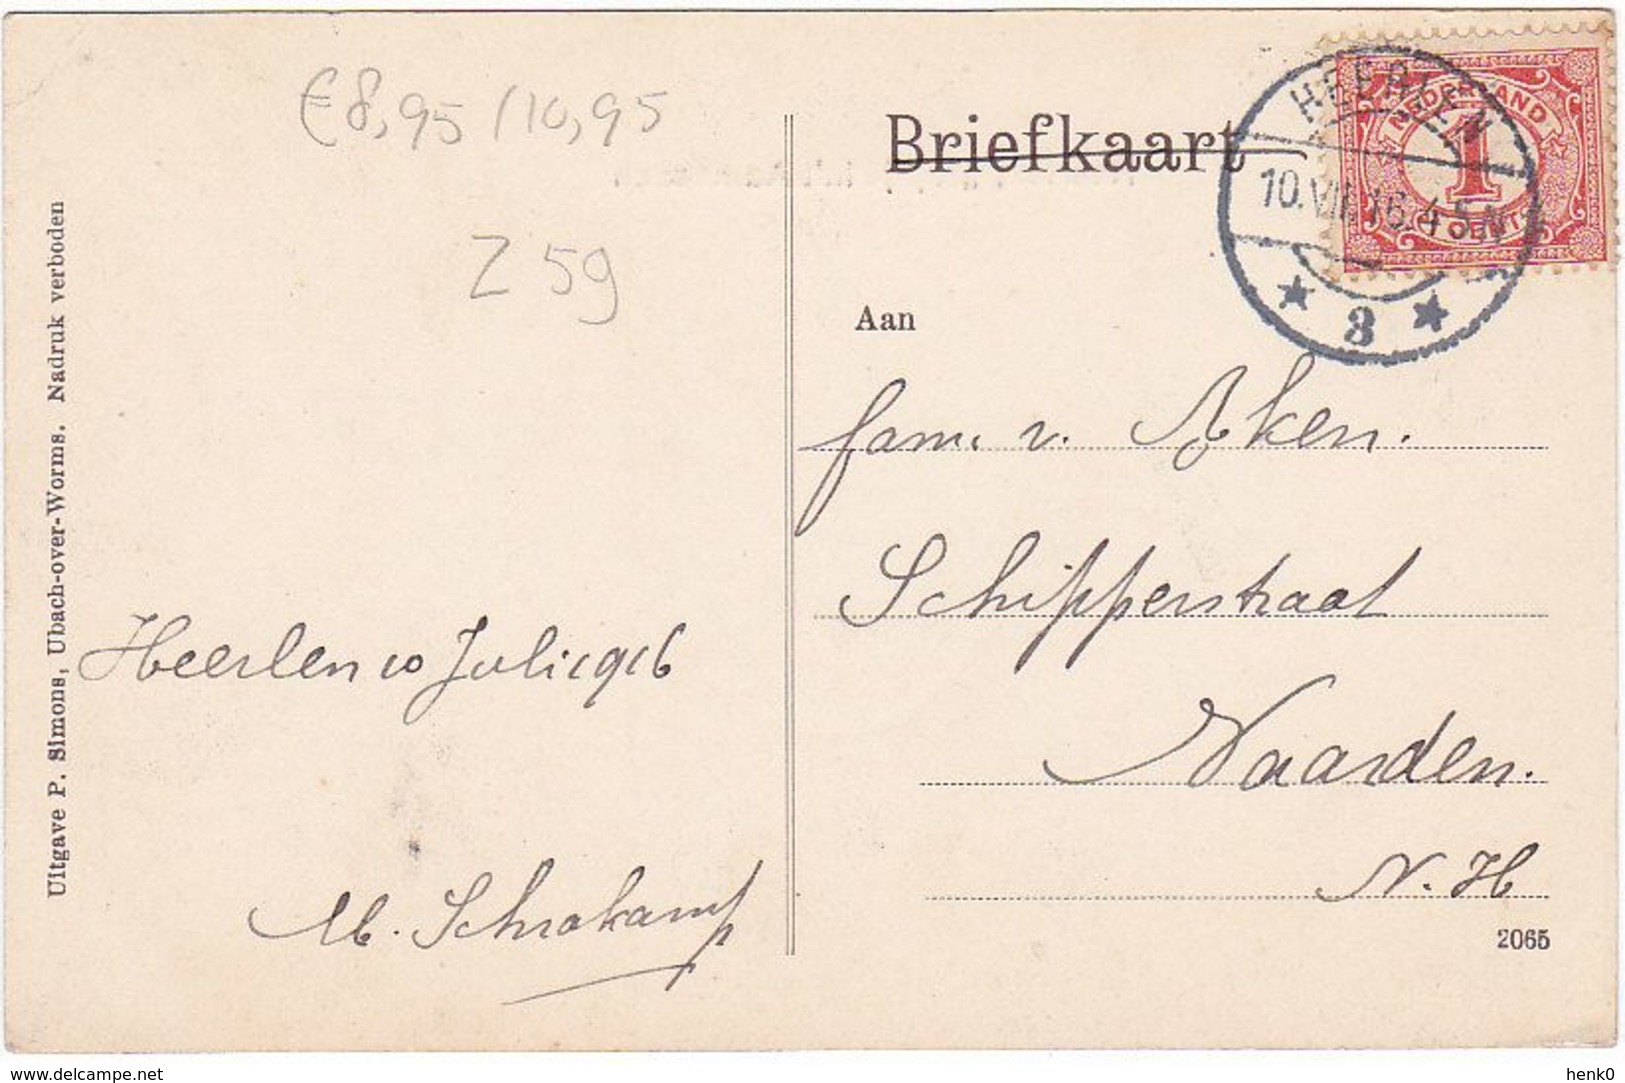 €8,95 / 10,95
Z 59
Uitgave P. Simons, Ubach-over-Worms. Nadruk verboden
Heerlen 10 Juli 1916
M. Schrokamp
Briefkaart
HEERLEN
10.VII.16.4-5N
3
NEDERLAND
1
CENT
Aan
fam. v. Aken.
Schipperstraat
Naarden.
N.H
2065
www.delcampe.net
henk0